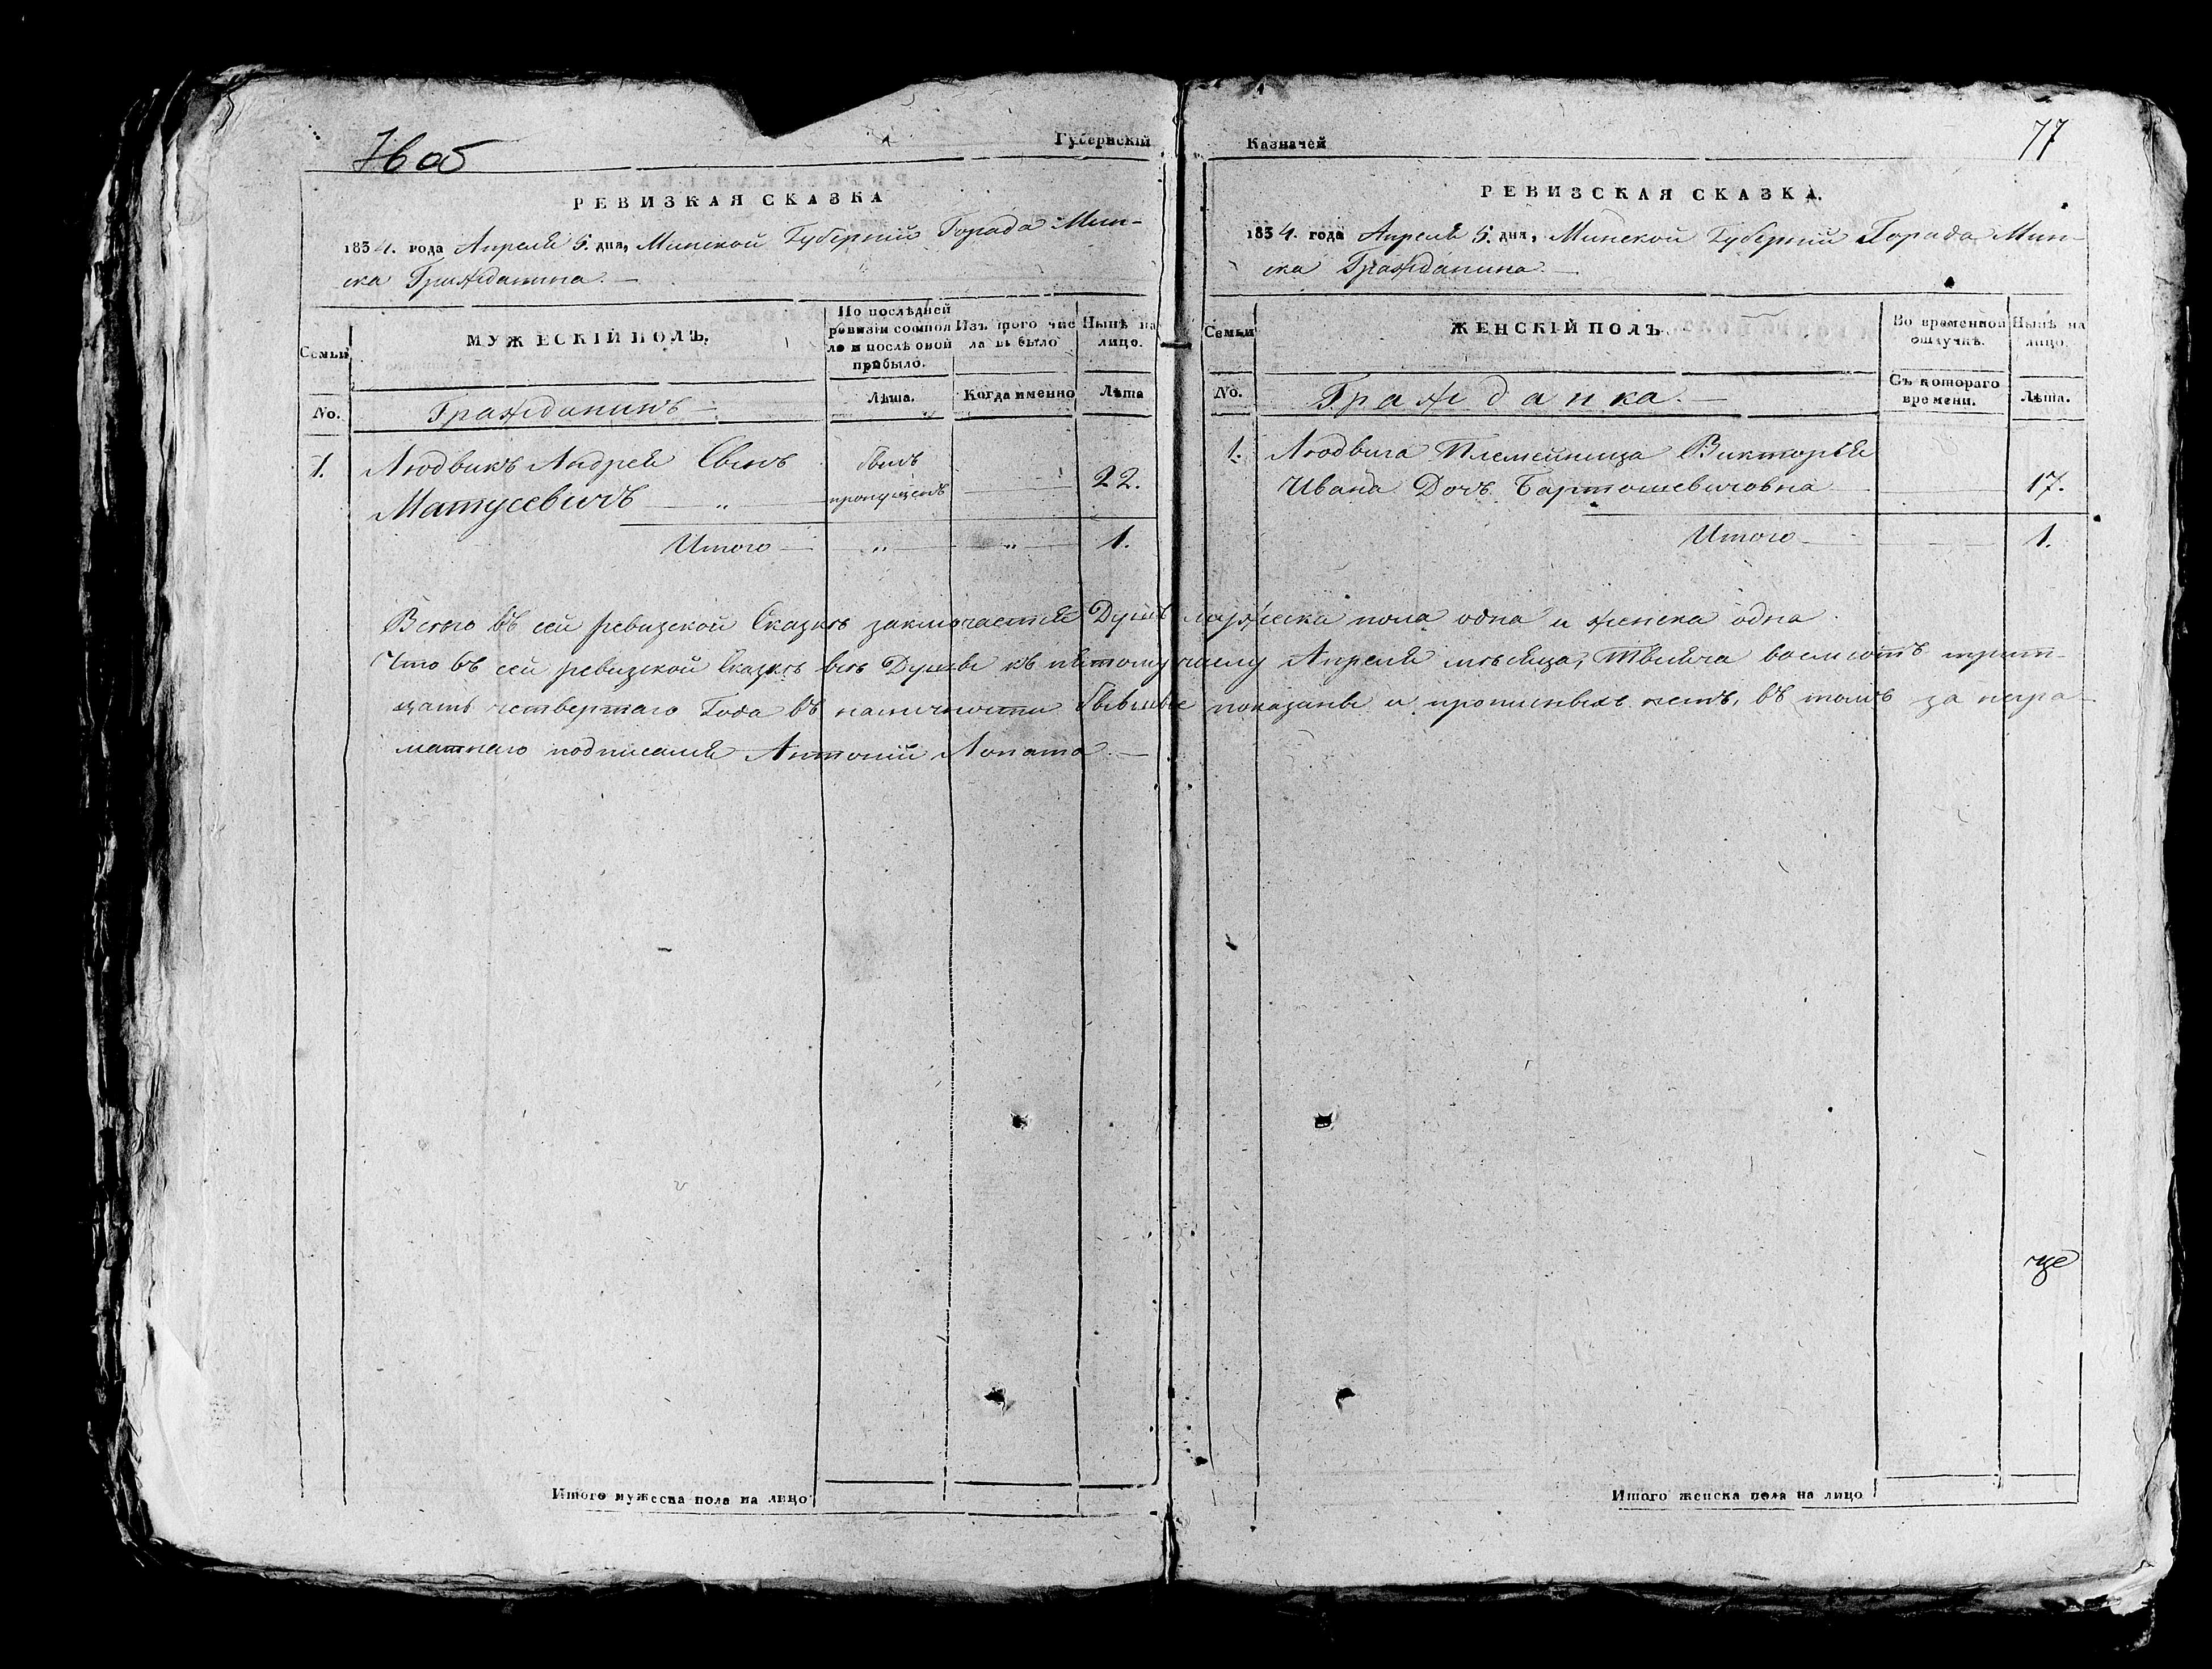 76 об
Губернскій
РЕВИЗКАЯ СКАЗКА
1834. года Апреля 5. дня, Минской Губерніи Города Мин-
ска Гражданина. —
Семьи
МУЖЕСКІЙ ПОЛЪ.
По послѣдней
ревизіи состоя
ло и послѣ оной
прибыло.
Изъ того чис
ла выбыло
Нынѣ на
лицо.
No.
Гражданинъ —
Лѣта.
Когда именно
Лѣта
1. Людвикъ Андрея Сынъ былъ
Матусевичъ — „ — пропущенъ — 22.
Итого — „ — „ — 1.
Казначей
77
РЕВИЗСКАЯ СКАЗКА.
1834. года Апреля 5. дня, Минской Губерніи Города Мин-
ска Гражданина. —
Семьи
ЖЕНСКІЙ ПОЛЪ.
Во временной
отлучкѣ.
Нынѣ на
лицо.
No.
Гражданка. —
Съ котораго
времени.
Лѣта.
1. Людвига Племенница Викторья
Ивана Дочь Бартошевичовна — 17.
Итого — 1.
Всего въ сей ревизской Сказкѣ заключается Душъ мужеска пола одна и женска одна.
Что въ сей ревизской Сказкѣ всѣ Душы къ пятому числу Апреля мѣсяца, тысяча восмсотъ трит-
цать четвертаго Года въ наличности бывшые показаны и прописныхъ нетъ, въ томъ за негра-
матнаго подписался Антоній Лопата. —
Итого мужеска пола на лицо
Итого женска пола на лицо